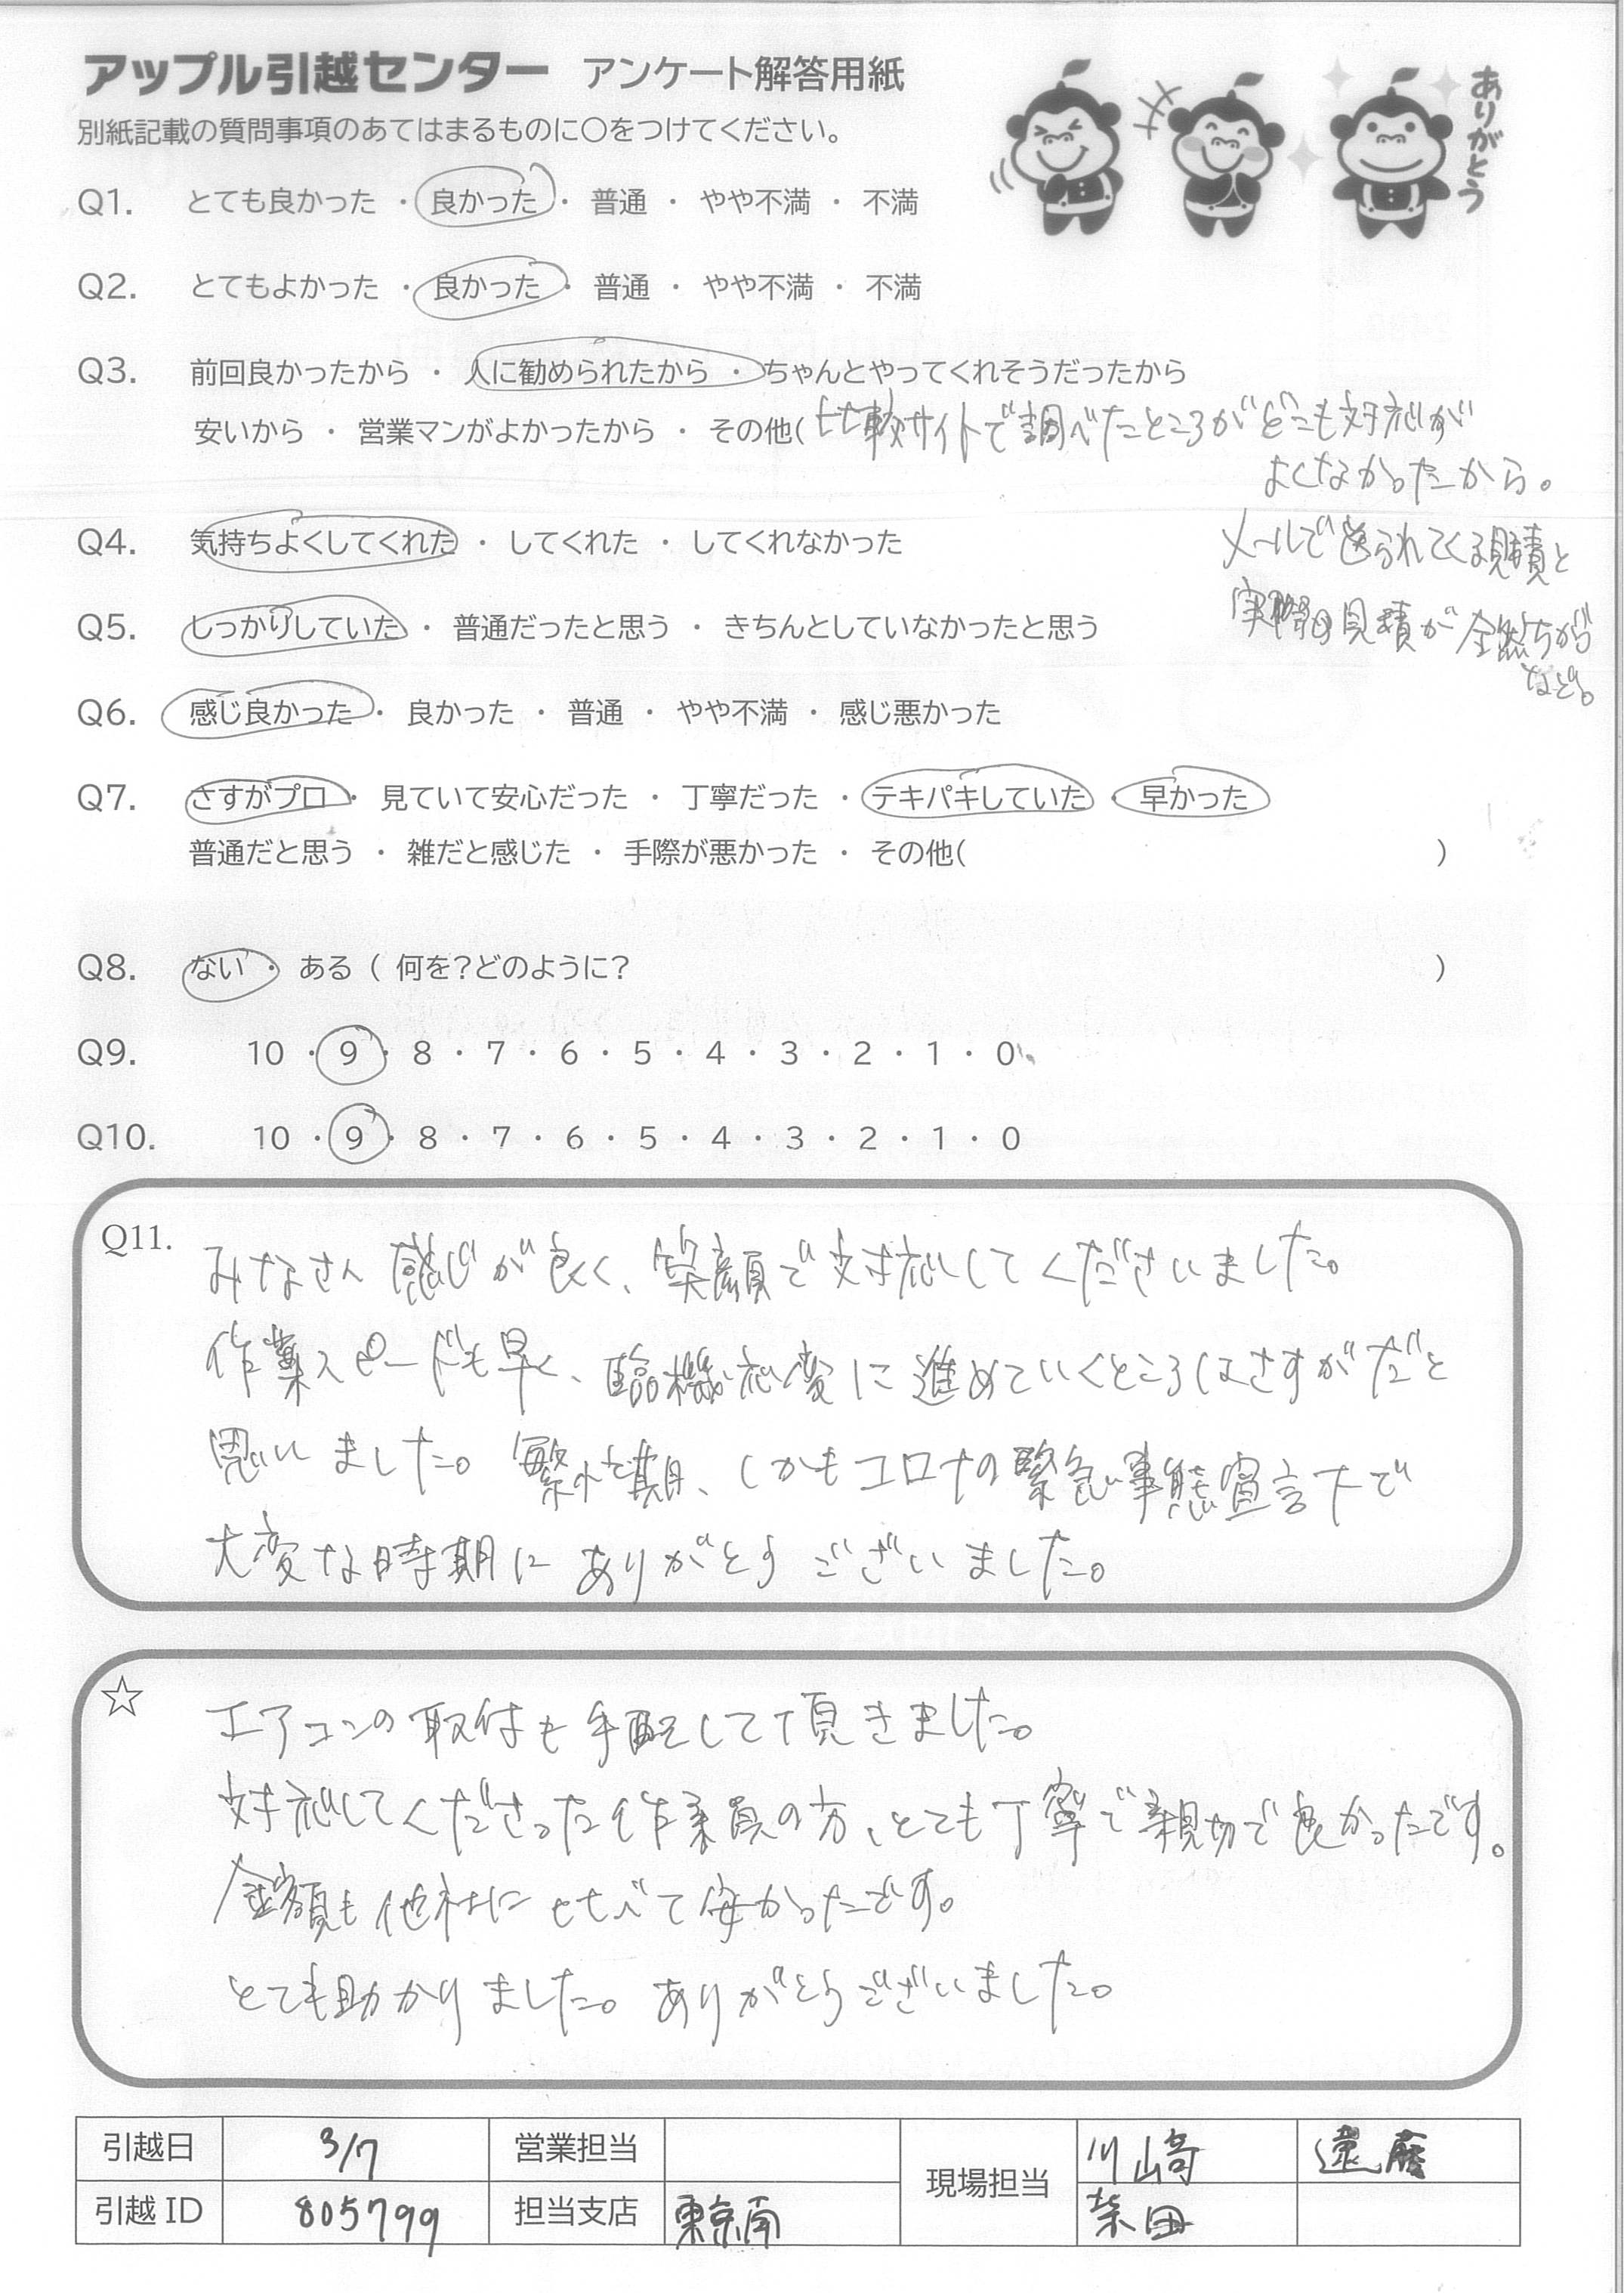 アップル引越センター アンケート解答用紙
ありがとう
別紙記載の質問事項のあてはまるものに〇をつけてください。
Q1. とても良かった ・ 良かった ・ 普通 ・ やや不満 ・ 不満
Q2. とてもよかった ・ 良かった ・ 普通 ・ やや不満 ・ 不満
Q3. 前回良かったから ・ 人に勧められたから ・ ちゃんとやってくれそうだったから
安いから ・ 営業マンがよかったから ・ その他( 比較サイトで調べたところがどこも対応が
よくなかったから。
メールで送られてくる見積と
実際の見積が全然ちがう
など。
Q4. 気持ちよくしてくれた ・ してくれた ・ してくれなかった
Q5. しっかりしていた ・ 普通だったと思う ・ きちんとしていなかったと思う
Q6. 感じ良かった ・ 良かった ・ 普通 ・ やや不満 ・ 感じ悪かった
Q7. さすがプロ ・ 見ていて安心だった ・ 丁寧だった ・ テキパキしていた ・ 早かった
普通だと思う ・ 雑だと感じた ・ 手際が悪かった ・ その他( )
Q8. ない ・ ある ( 何を?どのように? )
Q9. 10 ・ 9 ・ 8 ・ 7 ・ 6 ・ 5 ・ 4 ・ 3 ・ 2 ・ 1 ・ 0
Q10. 10 ・ 9 ・ 8 ・ 7 ・ 6 ・ 5 ・ 4 ・ 3 ・ 2 ・ 1 ・ 0
Q11. みなさん感じが良く、笑顔で対応してくださいました。
作業スピードも早く、臨機応変に進めていくところはさすがだと
思いました。繁忙期、しかもコロナの緊急事態宣言下で
大変な時期にありがとうございました。
☆ エアコンの取付も手配して頂きました。
対応してくださった作業員の方、とても丁寧で親切で良かったです。
金額も他社に比べて安かったです。
とても助かりました。ありがとうございました。
引越日 3/7 営業担当 現場担当 川崎 遠藤
引越ID 805799 担当支店 東京南 柴田